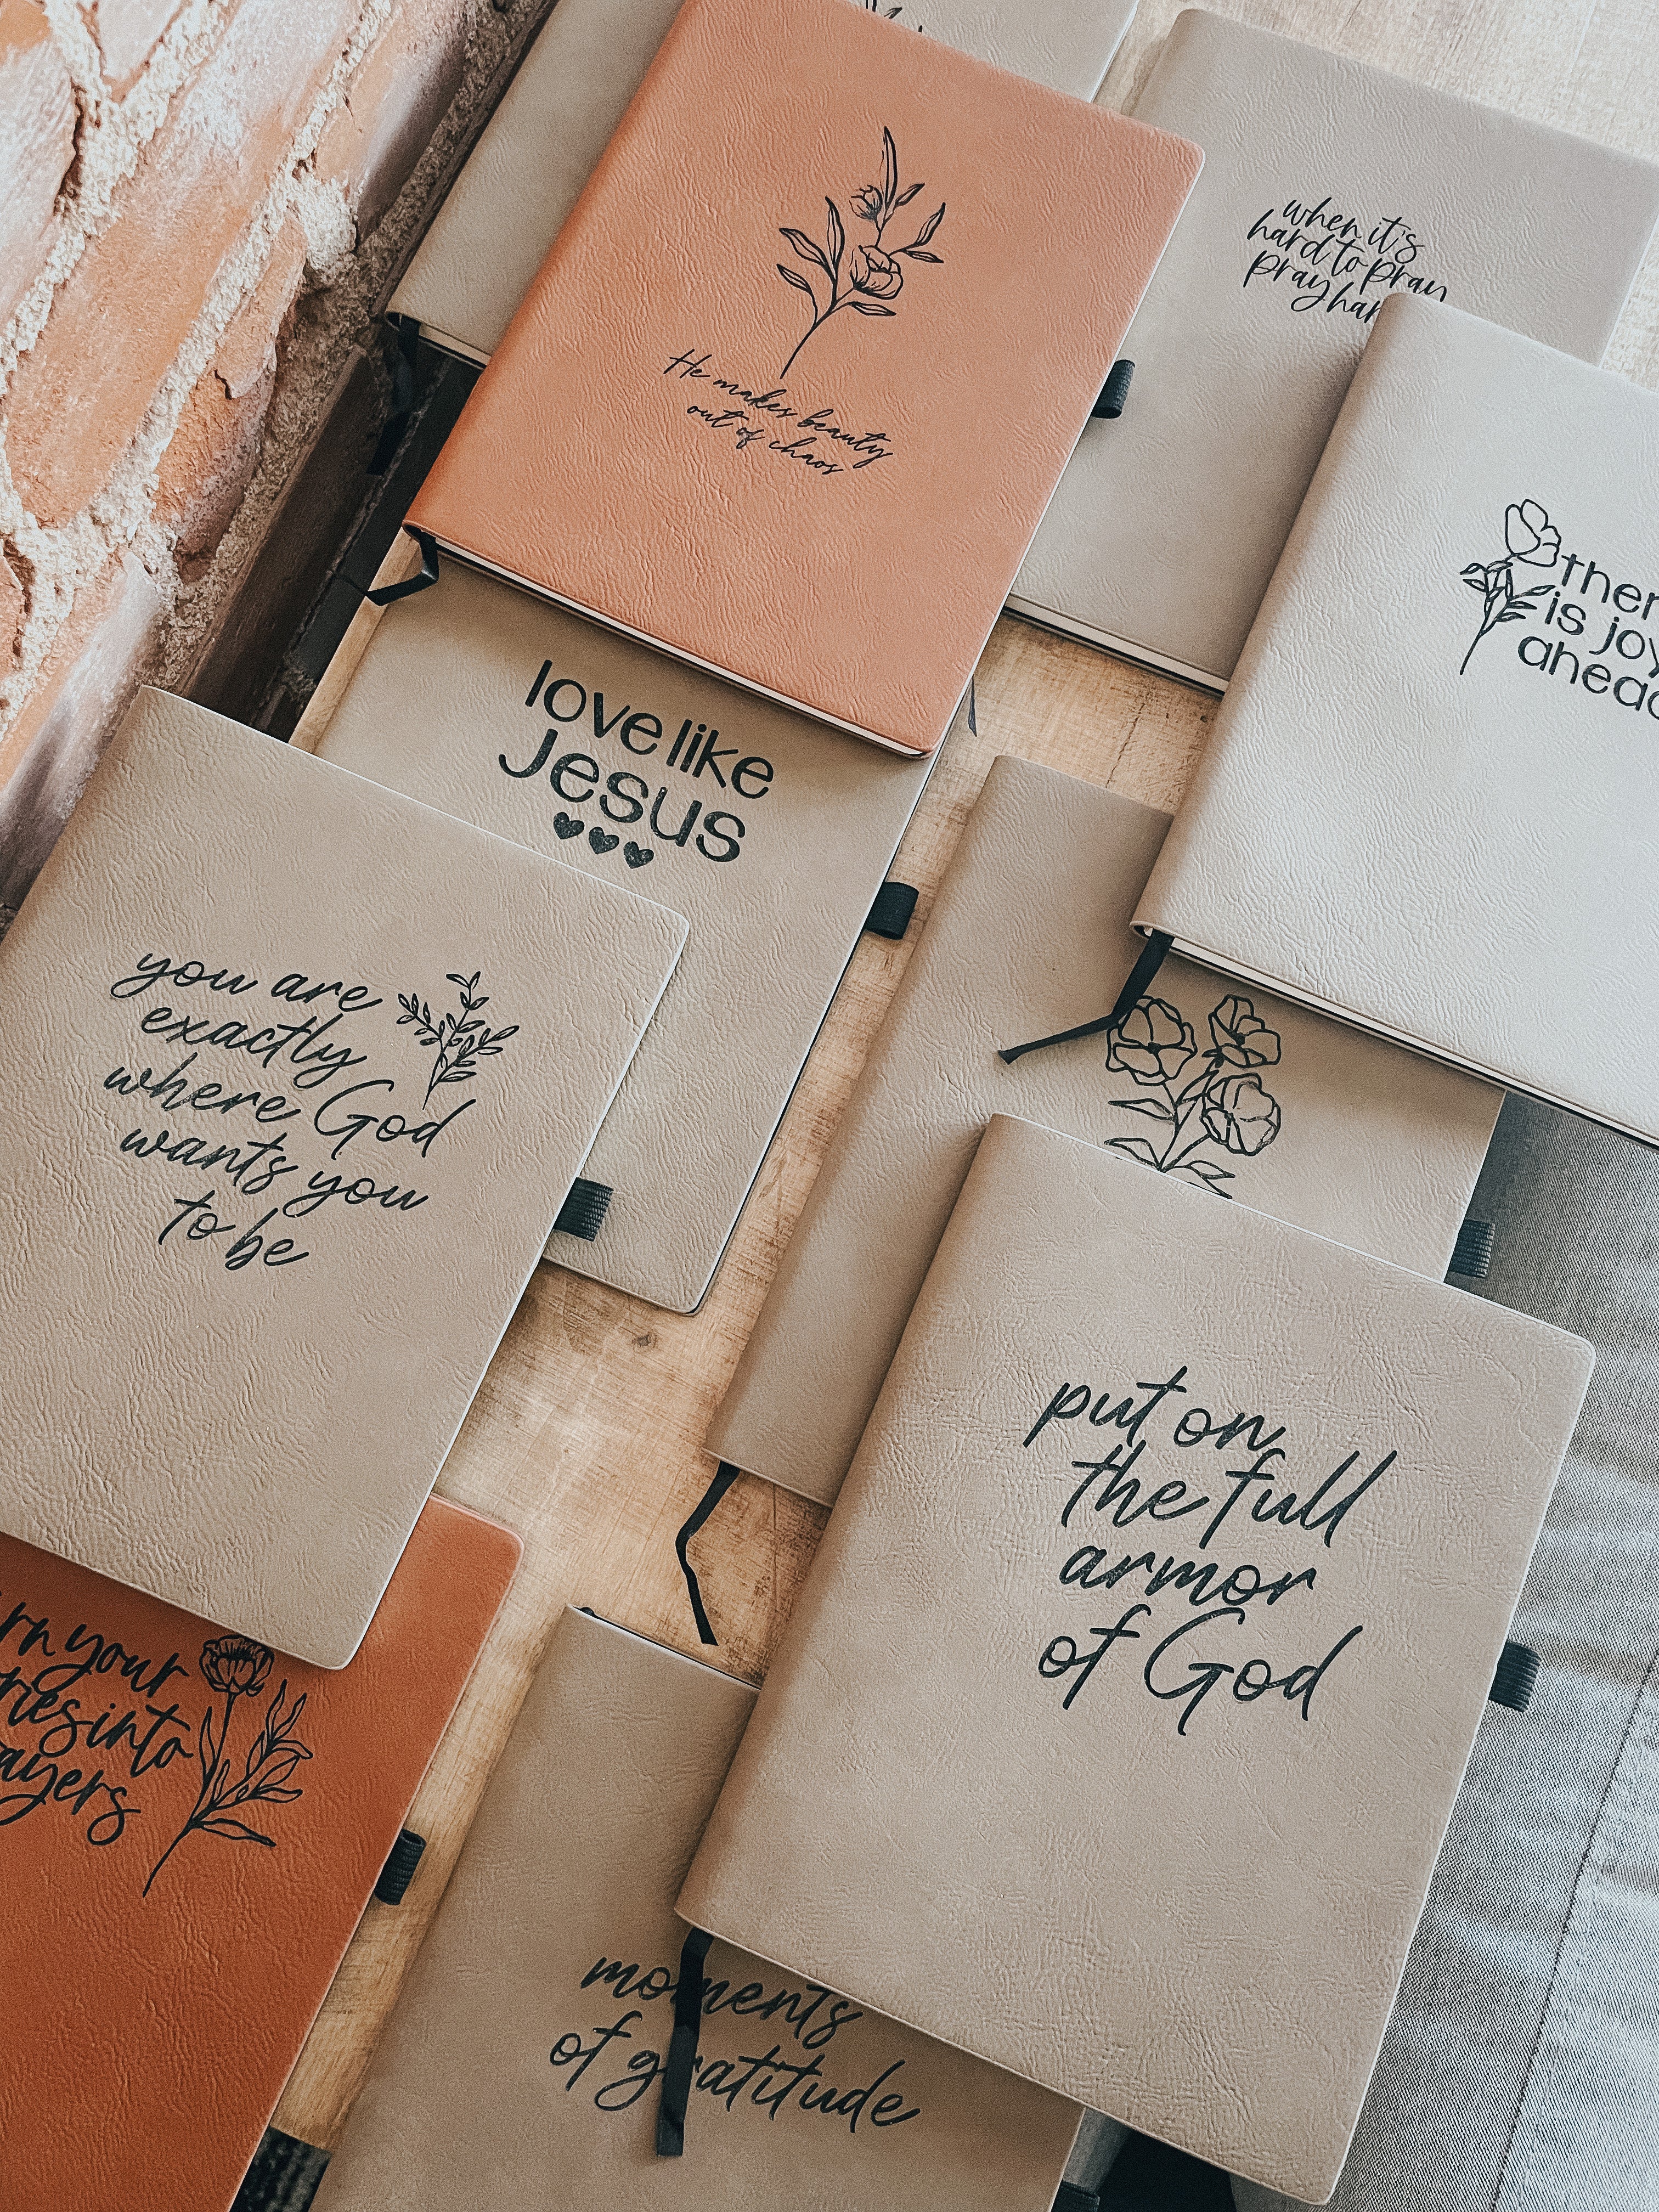 He makes beauty
out of chaos
when it's
hard to pray
pray
is joy
love like
Jesus
you are
exactly
where God
wants you
to be
put on
the full
armor
of God
your
into
moments
of gratitude